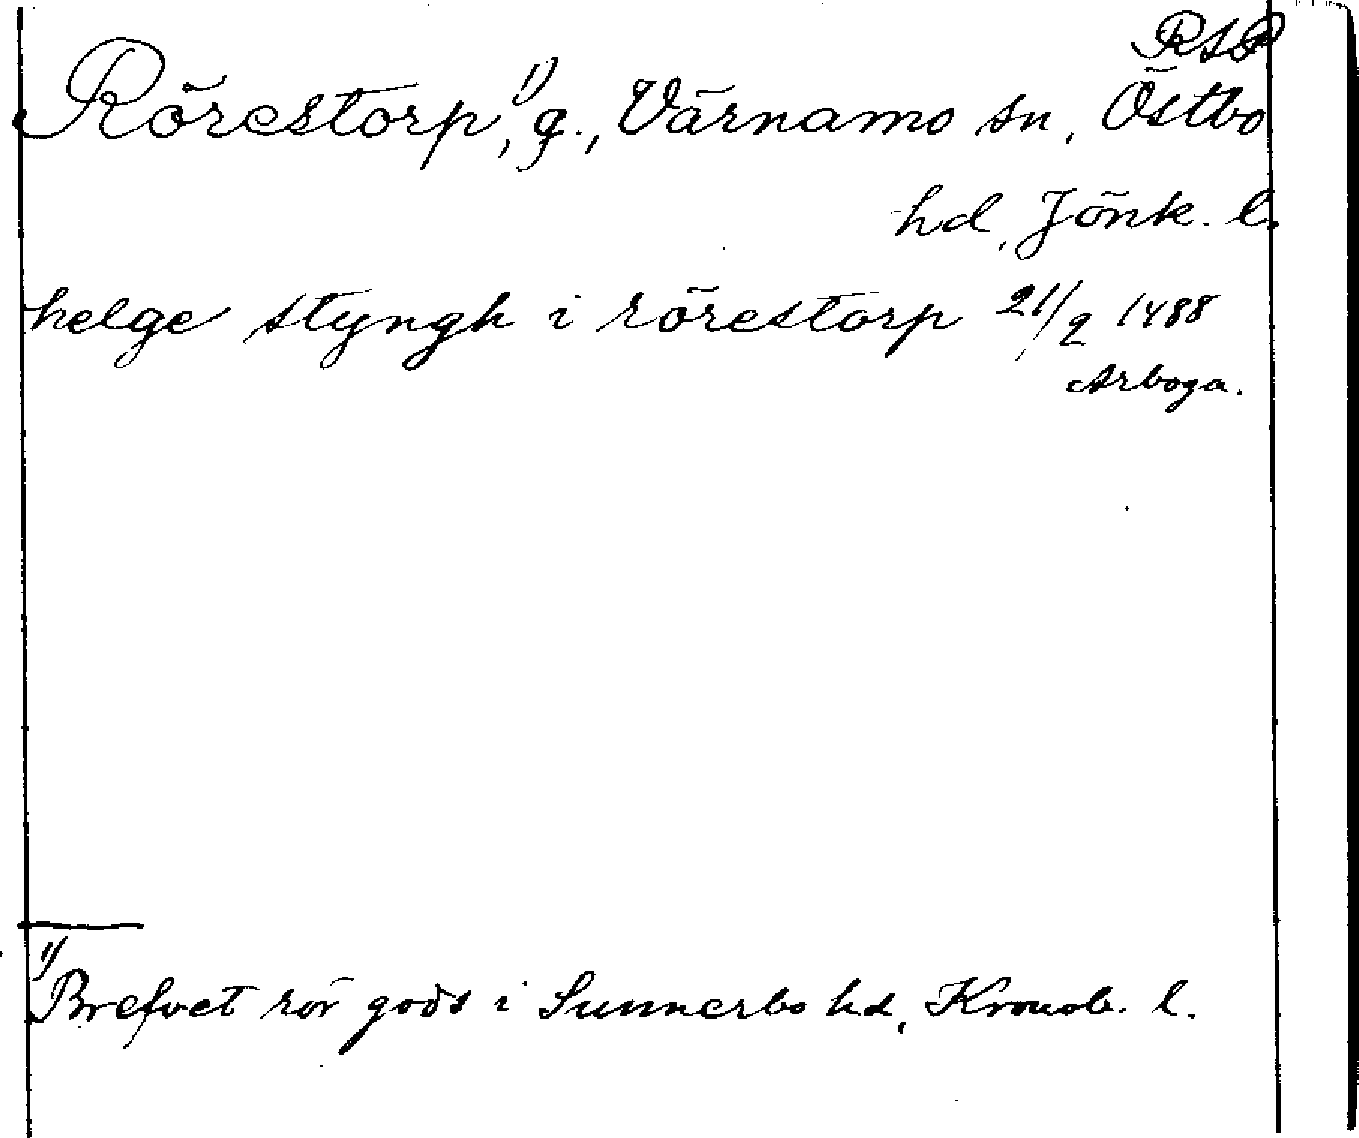 RAP
Rörestorp,¹⁾ g., Värnamo sn, Östbo
hd, Jönk. l.
helge styngh i rörestorp 21/2 1488
Arboga.
¹⁾ Brefvet rör gods i Sunnerbo hd, Kronob. l.